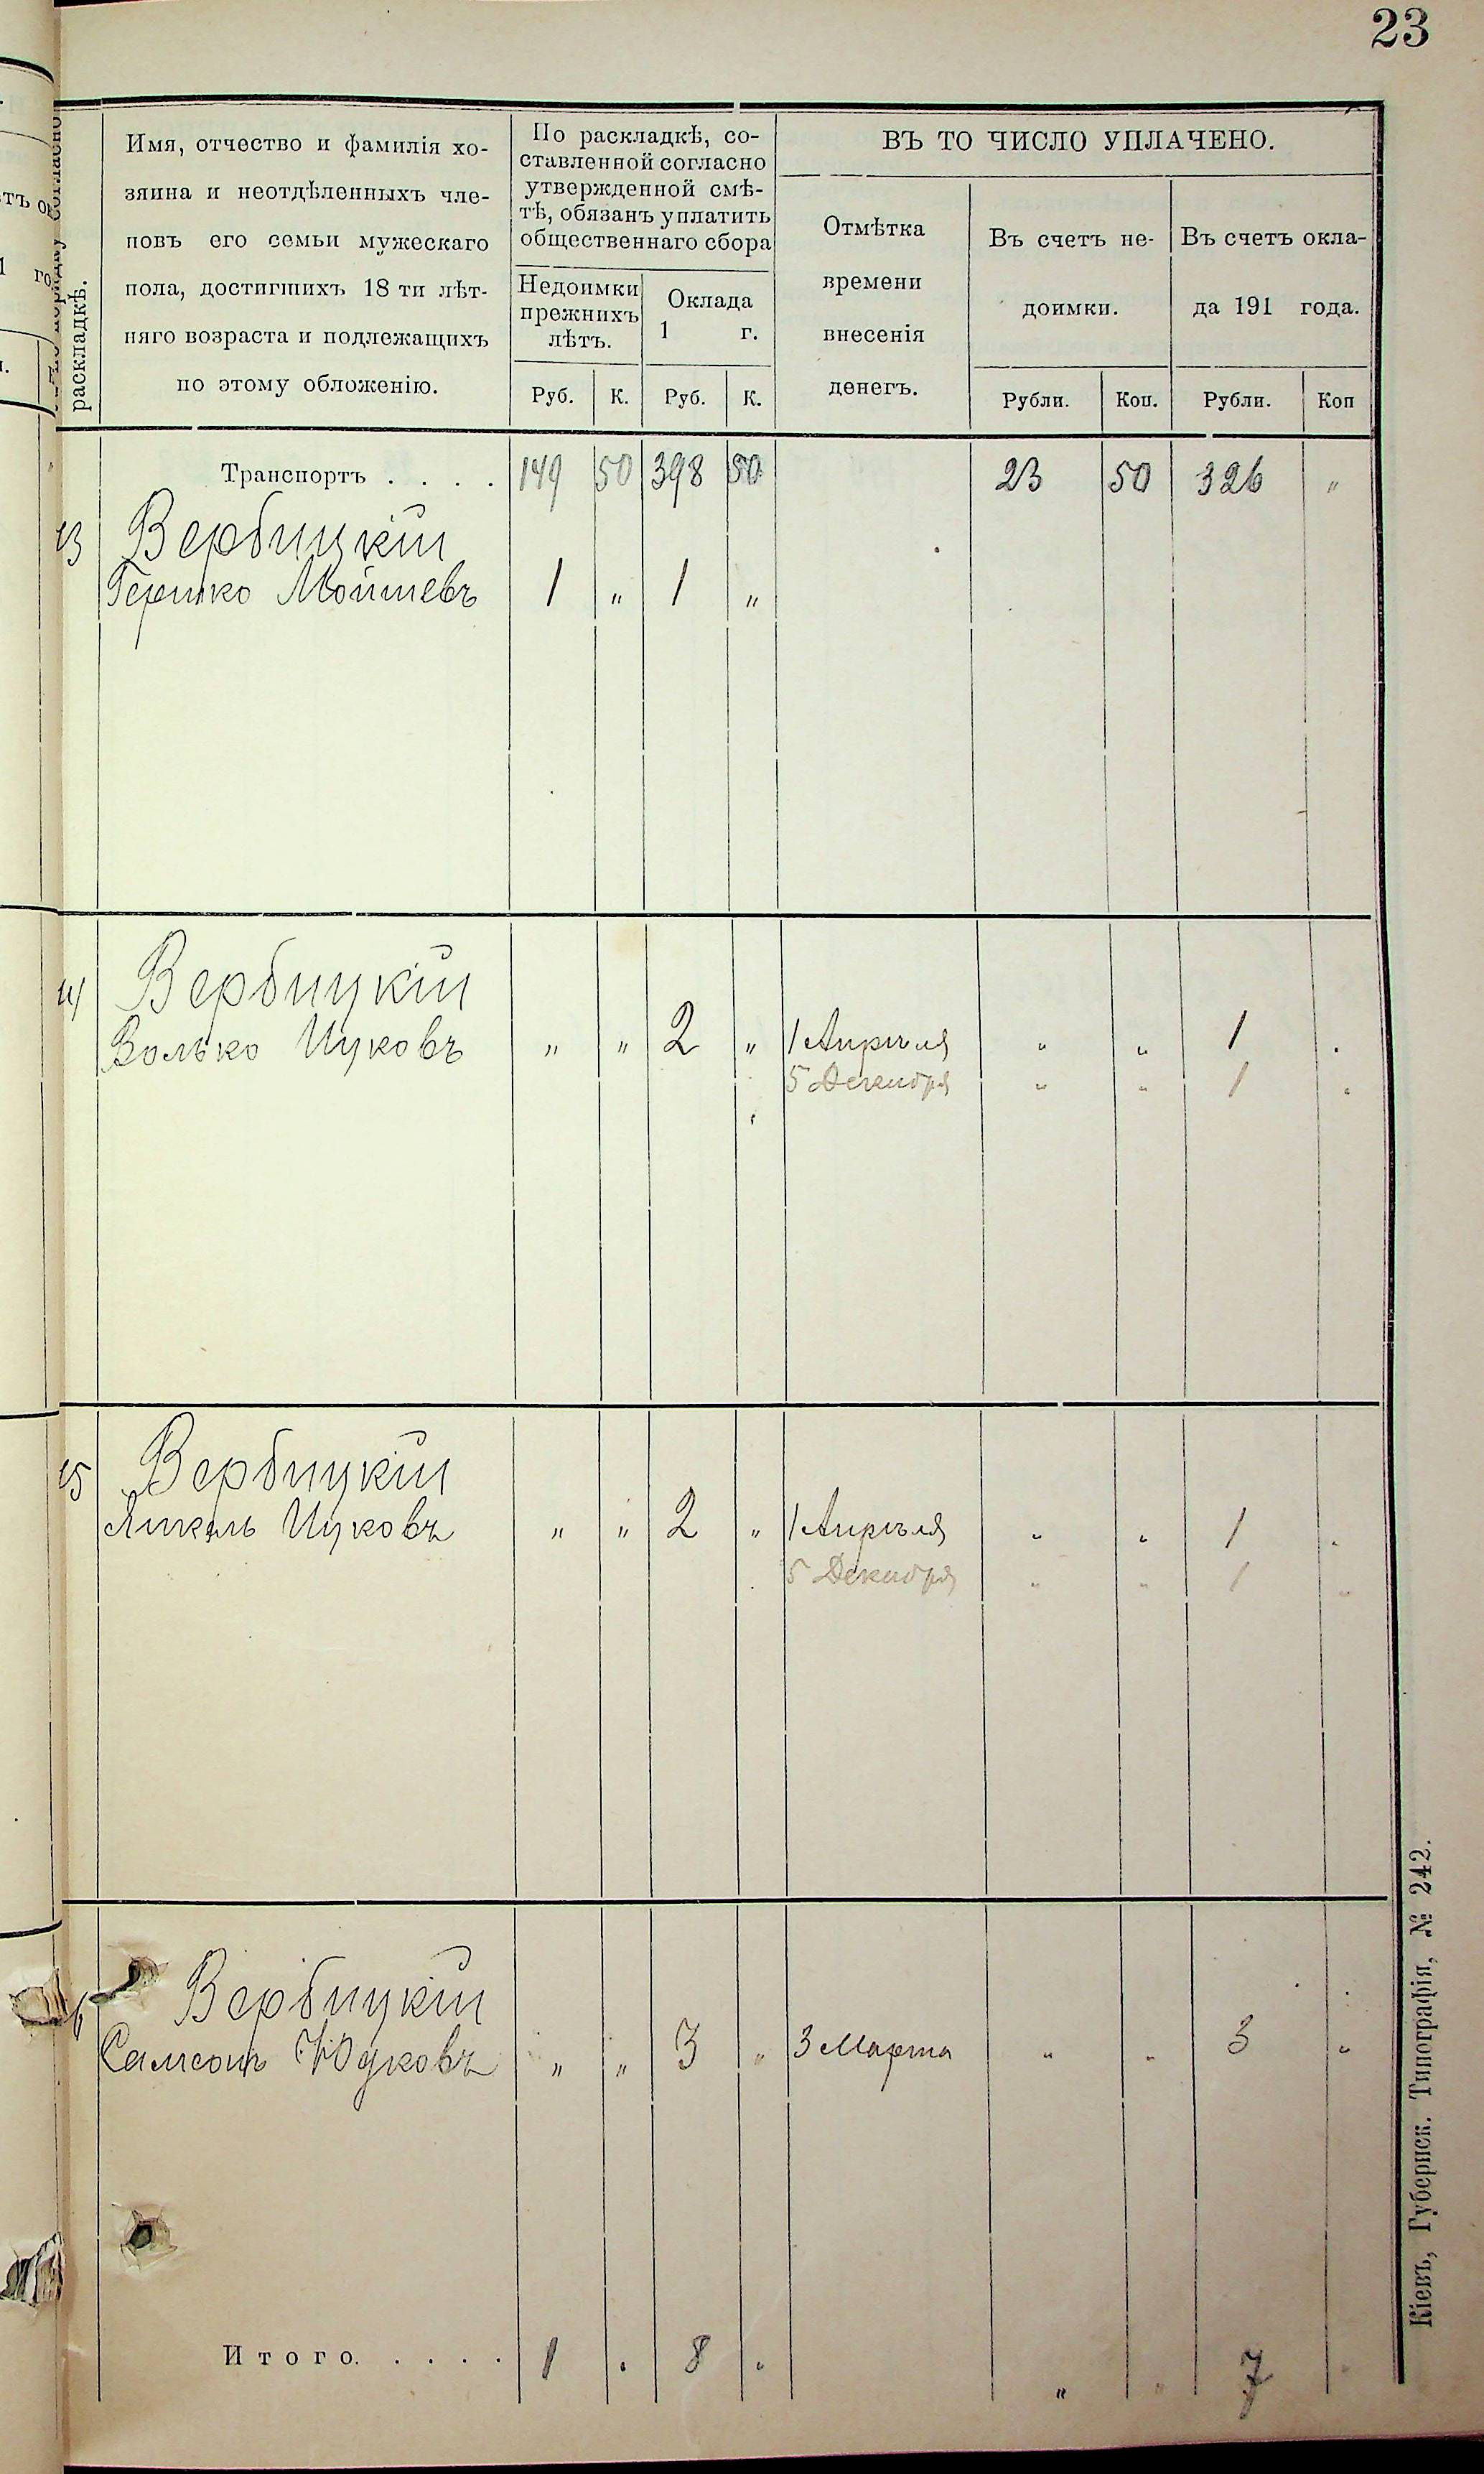 23
раскладкѣ.
Имя, отчество и фамилія хо-
зяина и неотдѣленныхъ чле-
новъ его семьи мужескаго
пола, достигшихъ 18 ти лѣт-
няго возраста и подлежащихъ
по этому обложенію.
По раскладкѣ, со-
ставленной согласно
утвержденной смѣ-
тѣ, обязанъ уплатить
общественнаго сбора
Недоимки
прежнихъ
лѣтъ.
Оклада
1 г.
Руб. К. Руб. К.
ВЪ ТО ЧИСЛО УПЛАЧЕНО.
Отмѣтка
времени
внесенія
денегъ.
Въ счетъ не-
доимки.
Въ счетъ окла-
да 191 года.
Рубли. Коп. Рубли. Коп
Транспортъ . . . . 149 50 398 50 23 50 326 "
Вербицкій
Гершко Мошиевъ 1 " 1 "
Вербицкій
Волько Ицковъ " " 2 " 1 Апрѣля " " 1 "
5 Декабря " " 1 "
Вербицкій
Янкель Ицковъ " " 2 " 1 Апрѣля " " 1 "
5 Декабря " " 1 "
Вербицкій
Самсонъ Юдковъ " " 3 " 3 Марта " " 3 "
Итого. . . . . 1 " 8 " " " 7
Кіевъ, Губернск. Типографія, № 242.